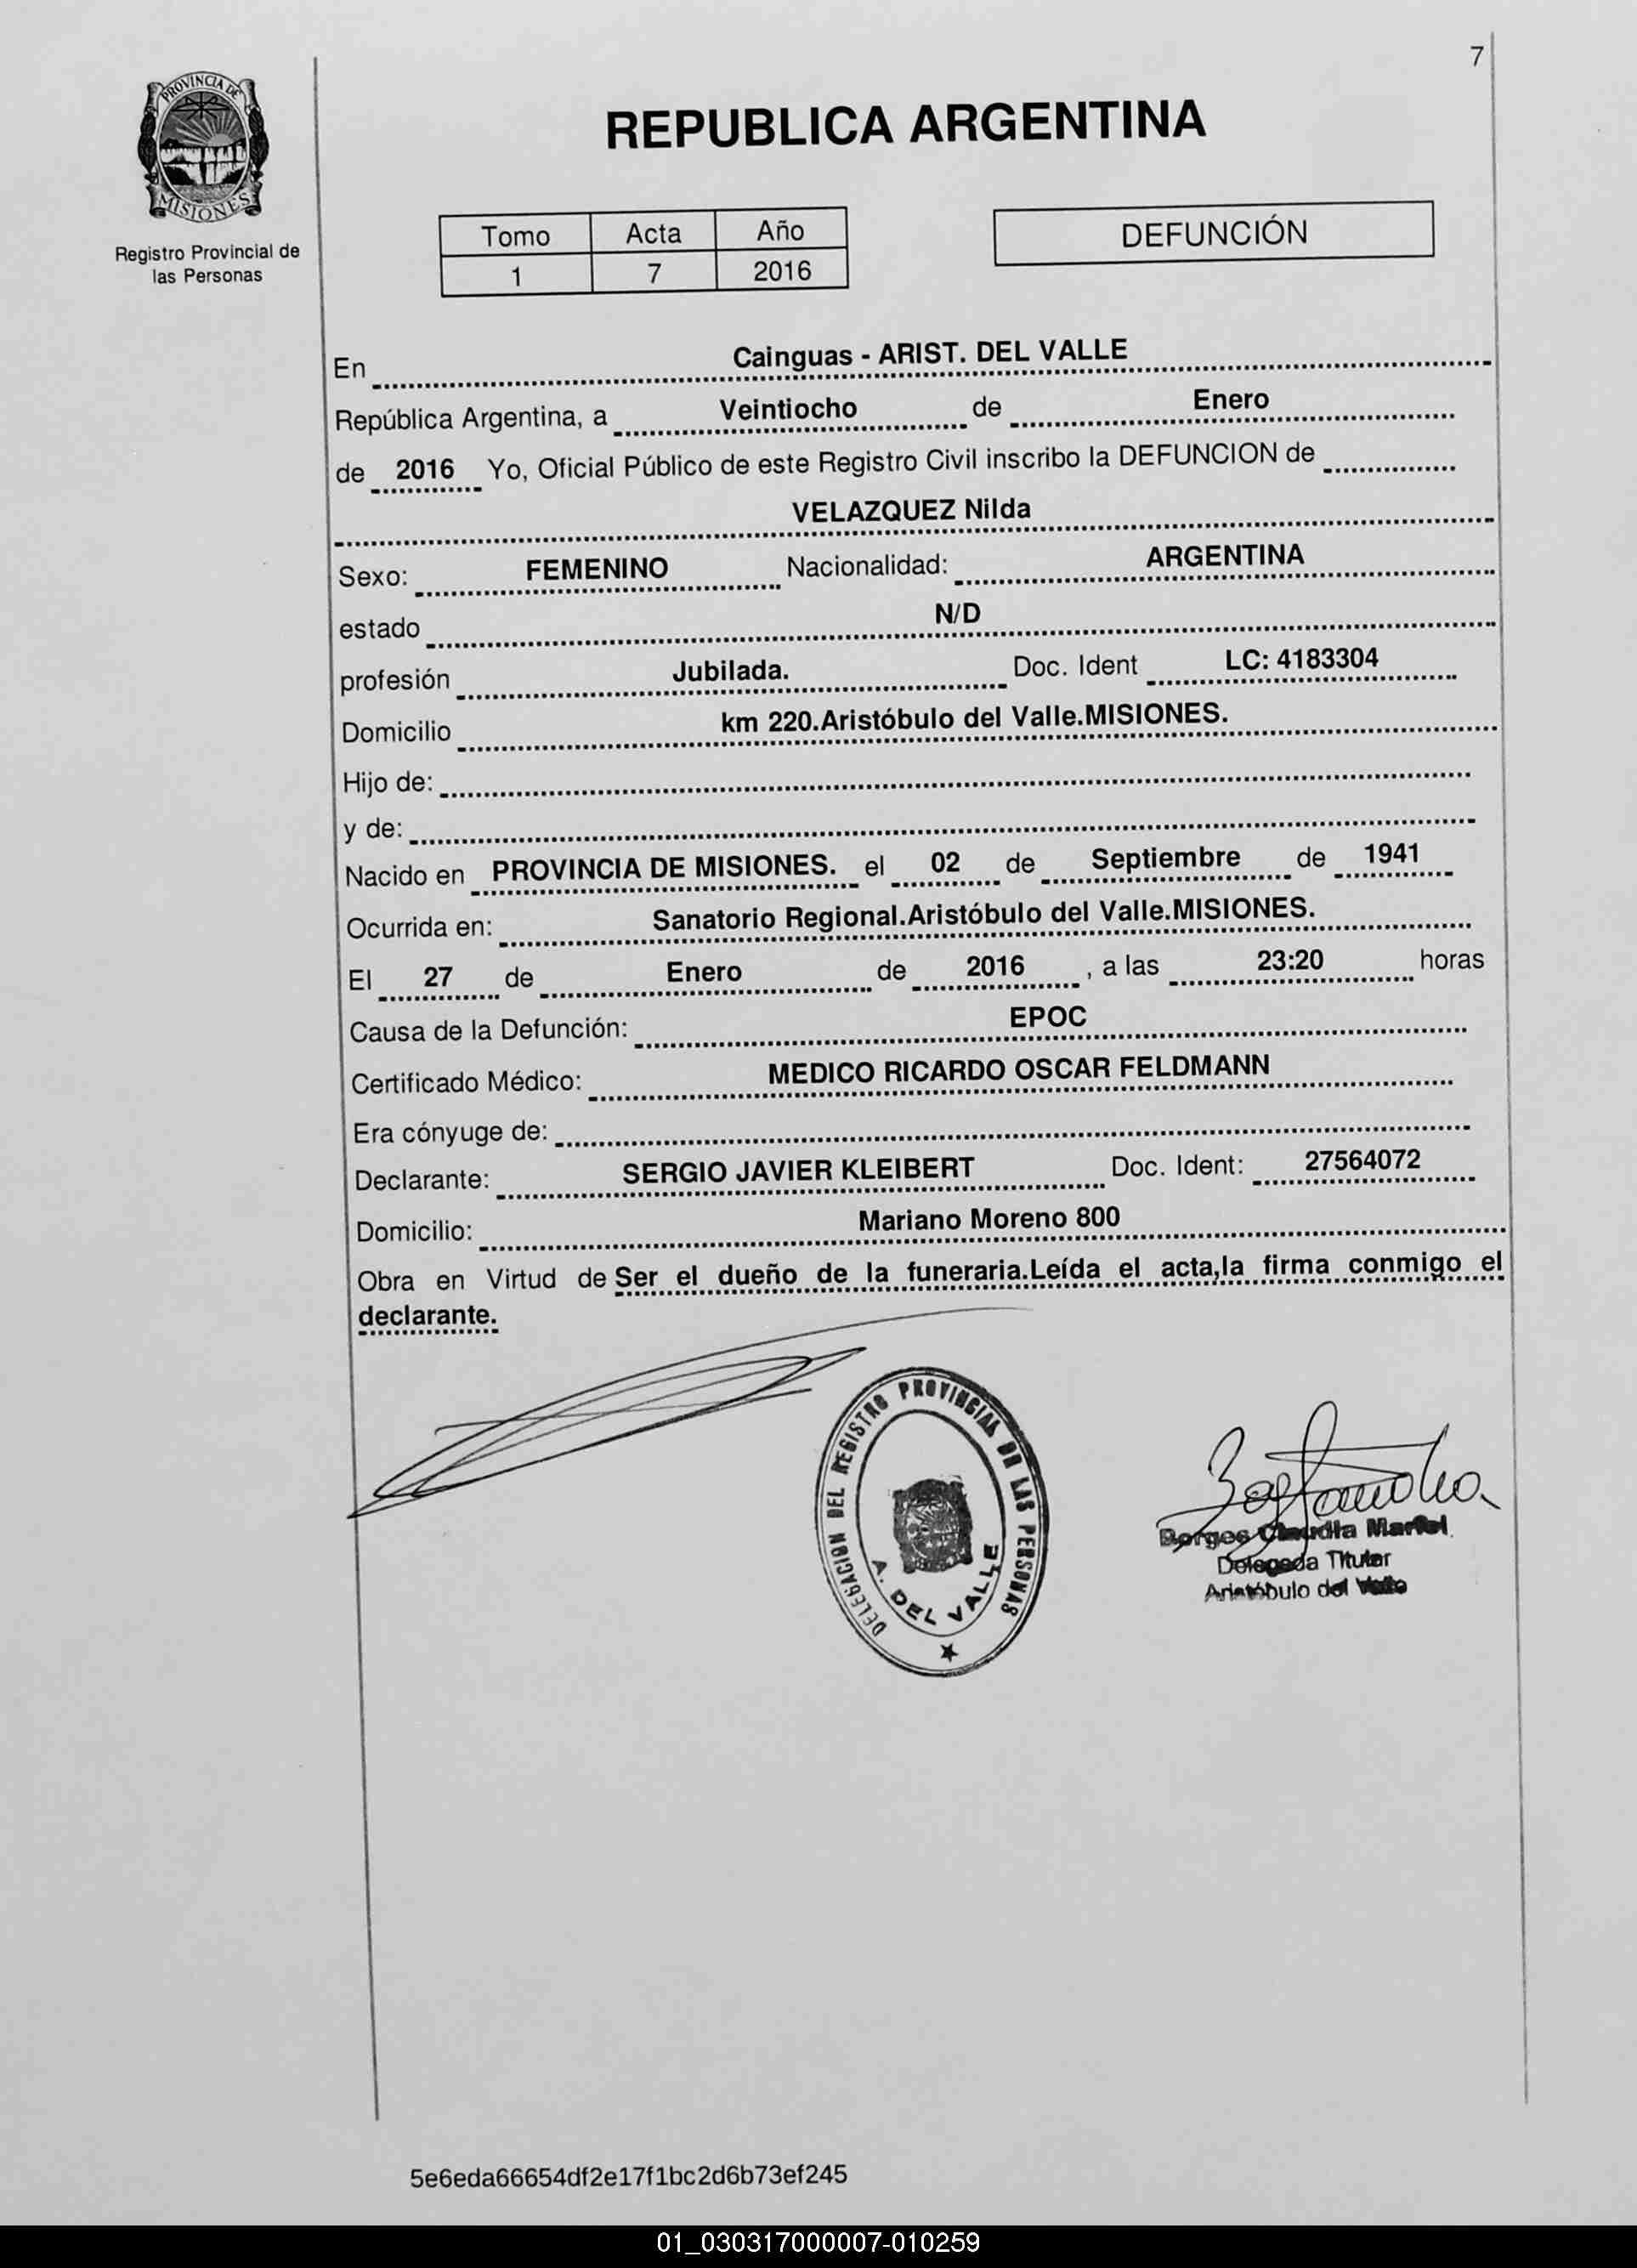 7
PROVINCIA DE
MISIONES
Registro Provincial de
las Personas
REPUBLICA ARGENTINA
Tomo Acta Año
1 7 2016
DEFUNCIÓN
En Cainguas - ARIST. DEL VALLE
República Argentina, a Veintiocho de Enero
de 2016 Yo, Oficial Público de este Registro Civil inscribo la DEFUNCION de
VELAZQUEZ Nilda
Sexo: FEMENINO Nacionalidad: ARGENTINA
estado N/D
profesión Jubilada. Doc. Ident LC: 4183304
Domicilio km 220.Aristóbulo del Valle.MISIONES.
Hijo de:
y de:
Nacido en PROVINCIA DE MISIONES. el 02 de Septiembre de 1941
Ocurrida en: Sanatorio Regional.Aristóbulo del Valle.MISIONES.
El 27 de Enero de 2016 , a las 23:20 horas
Causa de la Defunción: EPOC
Certificado Médico: MEDICO RICARDO OSCAR FELDMANN
Era cónyuge de:
Declarante: SERGIO JAVIER KLEIBERT Doc. Ident: 27564072
Domicilio: Mariano Moreno 800
Obra en Virtud de Ser el dueño de la funeraria.Leída el acta,la firma conmigo el
declarante.
DELEGACION DEL REGISTRO PROVINCIAL DE LAS PERSONAS
A. DEL VALLE
Borges Claudia Mariel
Delegada Titular
Aristóbulo del Valle
5e6eda66654df2e17f1bc2d6b73ef245
01_030317000007-010259